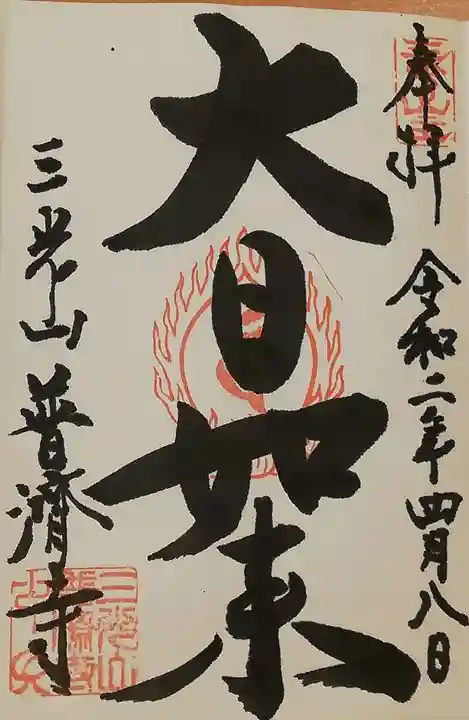 奉拝 令和二年四月八日
大日如来
三光山 普濟寺